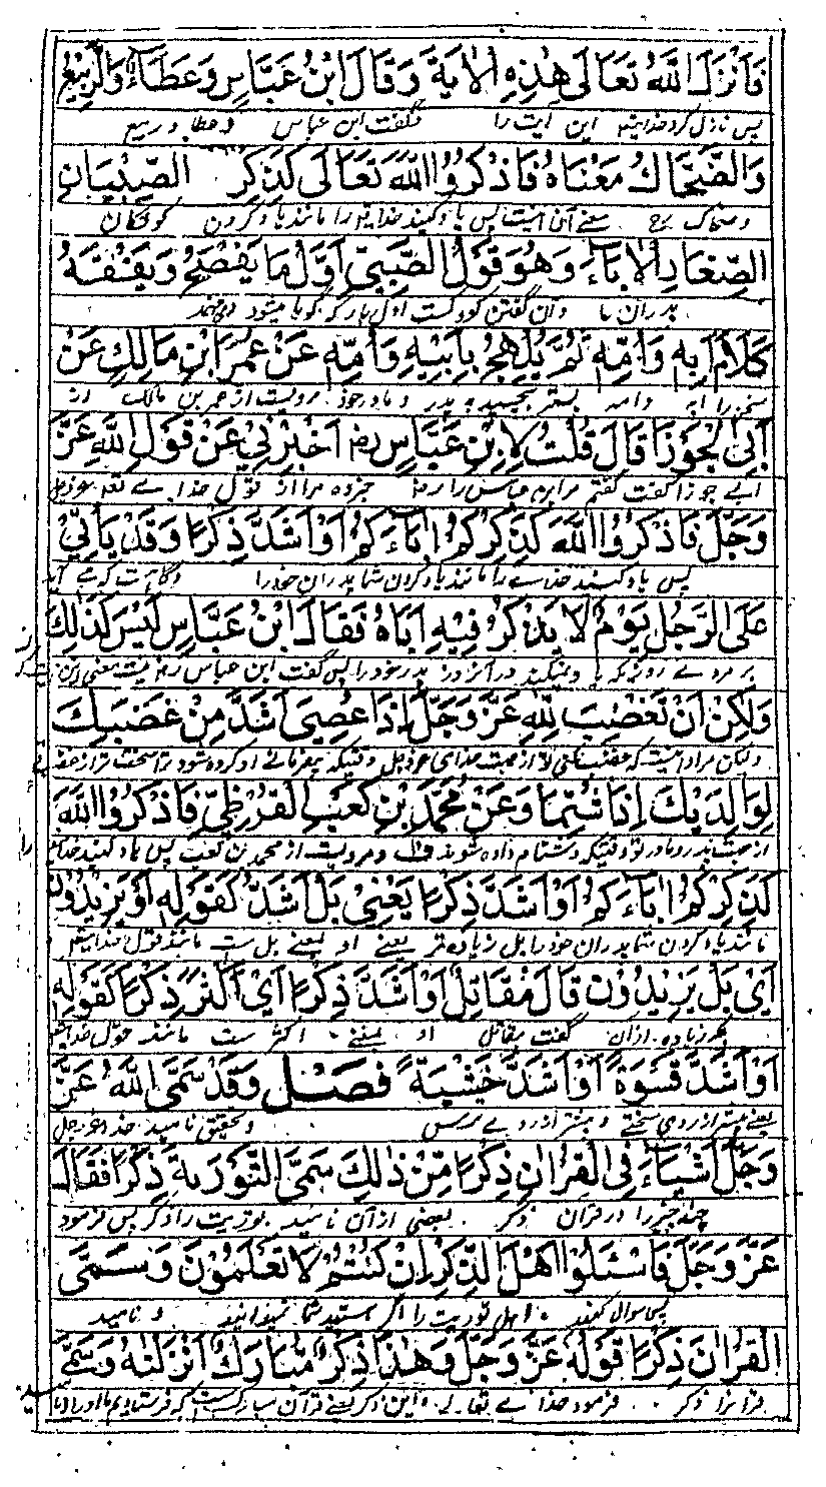 فَاَنْزَلَ اللّٰهُ تَعَالٰى هٰذِهِ الْاٰيَةَ وَقَالَ ابْنُ عَبَّاسٍ وَعَطَاءٌ وَالرَّبِيْعُ
پس نازل کرد خدایتعالی این آیت را و گفت ابن عباس و عطا و ربیع
وَالضَّحَّاكُ مَعْنَاهُ فَاذْكُرُوا اللّٰهَ تَعَالٰى كَذِكْرِ الصِّبْيَانِ
و ضحاک معنی آن اینست پس یاد کنید خدایرا مانند یاد کردن کودکان
الصِّغَارِ الْاٰبَآءَ وَهُوَ قَوْلُ الصَّبِيِّ اَوَّلَ مَا يَفْصَحُ وَيَفْقَهُ
پدران را و آن گفتن کودکست اول بار که گویا میشود
كَلَامَ اَبِهِ وَاُمِّهِ ثُمَّ يَلْهَجُ بِاَبِيْهِ وَاُمِّهِ عَنْ عُمَرَ ابْنِ مَالِكٍ عَنْ
به پدر و مادر خود مرویست از عمر بن مالک از
اَبِى الْجَوْزَا قَالَ قُلْتُ لِابْنِ عَبَّاسٍ رض اَخْبِرْنِيْ عَنْ قَوْلِ اللّٰهِ عَزَّ
ابی جوزا گفت گفتم مر ابن عباس را رض خبر ده مرا از قول خدای تعالی عزوجل
وَجَلَّ فَاذْكُرُوا اللّٰهَ كَذِكْرِكُمْ اٰبَآءَكُمْ اَوْ اَشَدَّ ذِكْرًا وَقَدْ يَأْتِيْ
پس یاد کنید خدای را مانند یاد کردن شما پدران خود را و گاه است که می آید
عَلَى الرَّجُلِ يَوْمٌ لَا يَذْكُرُ فِيْهِ اَبَاهُ فَقَالَ ابْنُ عَبَّاسٍ لَيْسَ كَذٰلِكَ
بر مردی روزیکه یاد نمیکند در آنروز پدر خود را پس گفت ابن عباس رض نیست معنی این
وَلٰكِنْ اَنْ تَغْضَبَ لِلّٰهِ عَزَّ وَجَلَّ اِذَا عُصِيَ اَشَدَّ مِنْ غَضَبِكَ
ولیکن مراد اینست که از جهت خدای عزوجل وقتیکه بیفرمانی او کرده شود سخت تر از
لِوَالِدَيْكَ اِذَا شُتِمَا وَعَنْ مُحَمَّدِ بْنِ كَعْبِ الْقُرَظِيِّ فَاذْكُرُوا اللّٰهَ
از جهت پدر و مادر تو وقتیکه دشنام داده شوند و مرویست از محمد بن کعب پس یاد کنید خدا را
كَذِكْرِكُمْ اٰبَآءَكُمْ اَوْ اَشَدَّ ذِكْرًا يَعْنِيْ بَلْ اَشَدَّ كَقَوْلِهٖ اَوْ يَزِيْدُوْنَ
مانند یاد کردن شما پدران خود را بل زیاده تر یعنی او بمعنی بل ست مانند قول خدایتعالی
اَيْ بَلْ يَزِيْدُوْنَ قَالَ مُقَاتِلٌ اَوْ اَشَدَّ ذِكْرًا اَيْ اَكْثَرَ ذِكْرًا كَقَوْلِهٖ
زیاده از آن گفت مقاتل او بمعنی اکثر ست مانند قول خدایتعالی
اَوْ اَشَدُّ قَسْوَةً اَوْ اَشَدَّ خَشْيَةً فَصْلٌ وَقَدْ سَمَّى اللّٰهُ عَزَّ
یعنی بیشتر از روی سختی و بیشتر از روی ترس و تحقیق نامید خدا عزوجل
وَجَلَّ اَشْيَآءَ فِى الْقُرْاٰنِ ذِكْرًا مِّنْ ذٰلِكَ سَمَّى التَّوْرٰىةَ ذِكْرًا فَقَالَ
چند چیز را در قرآن ذکر بعضی از آن نامید توریت را ذکر پس فرمود
عَزَّ وَجَلَّ فَاسْئَلُوْا اَهْلَ الذِّكْرِ اِنْ كُنْتُمْ لَا تَعْلَمُوْنَ وَسَمَّى
پس سوال کنید اهل توریت را اگر هستید شما نمیدانید و نامید
الْقُرْاٰنَ ذِكْرًا قَوْلُهٗ عَزَّ وَجَلَّ وَهٰذَا ذِكْرٌ مُّبَارَكٌ اَنْزَلْنٰهُ وَسَمَّى
قرآنرا ذکر فرمود خدای تعالی و این ذکر یعنی قرآن مبارکست که فرستادیم ما او را و نامید